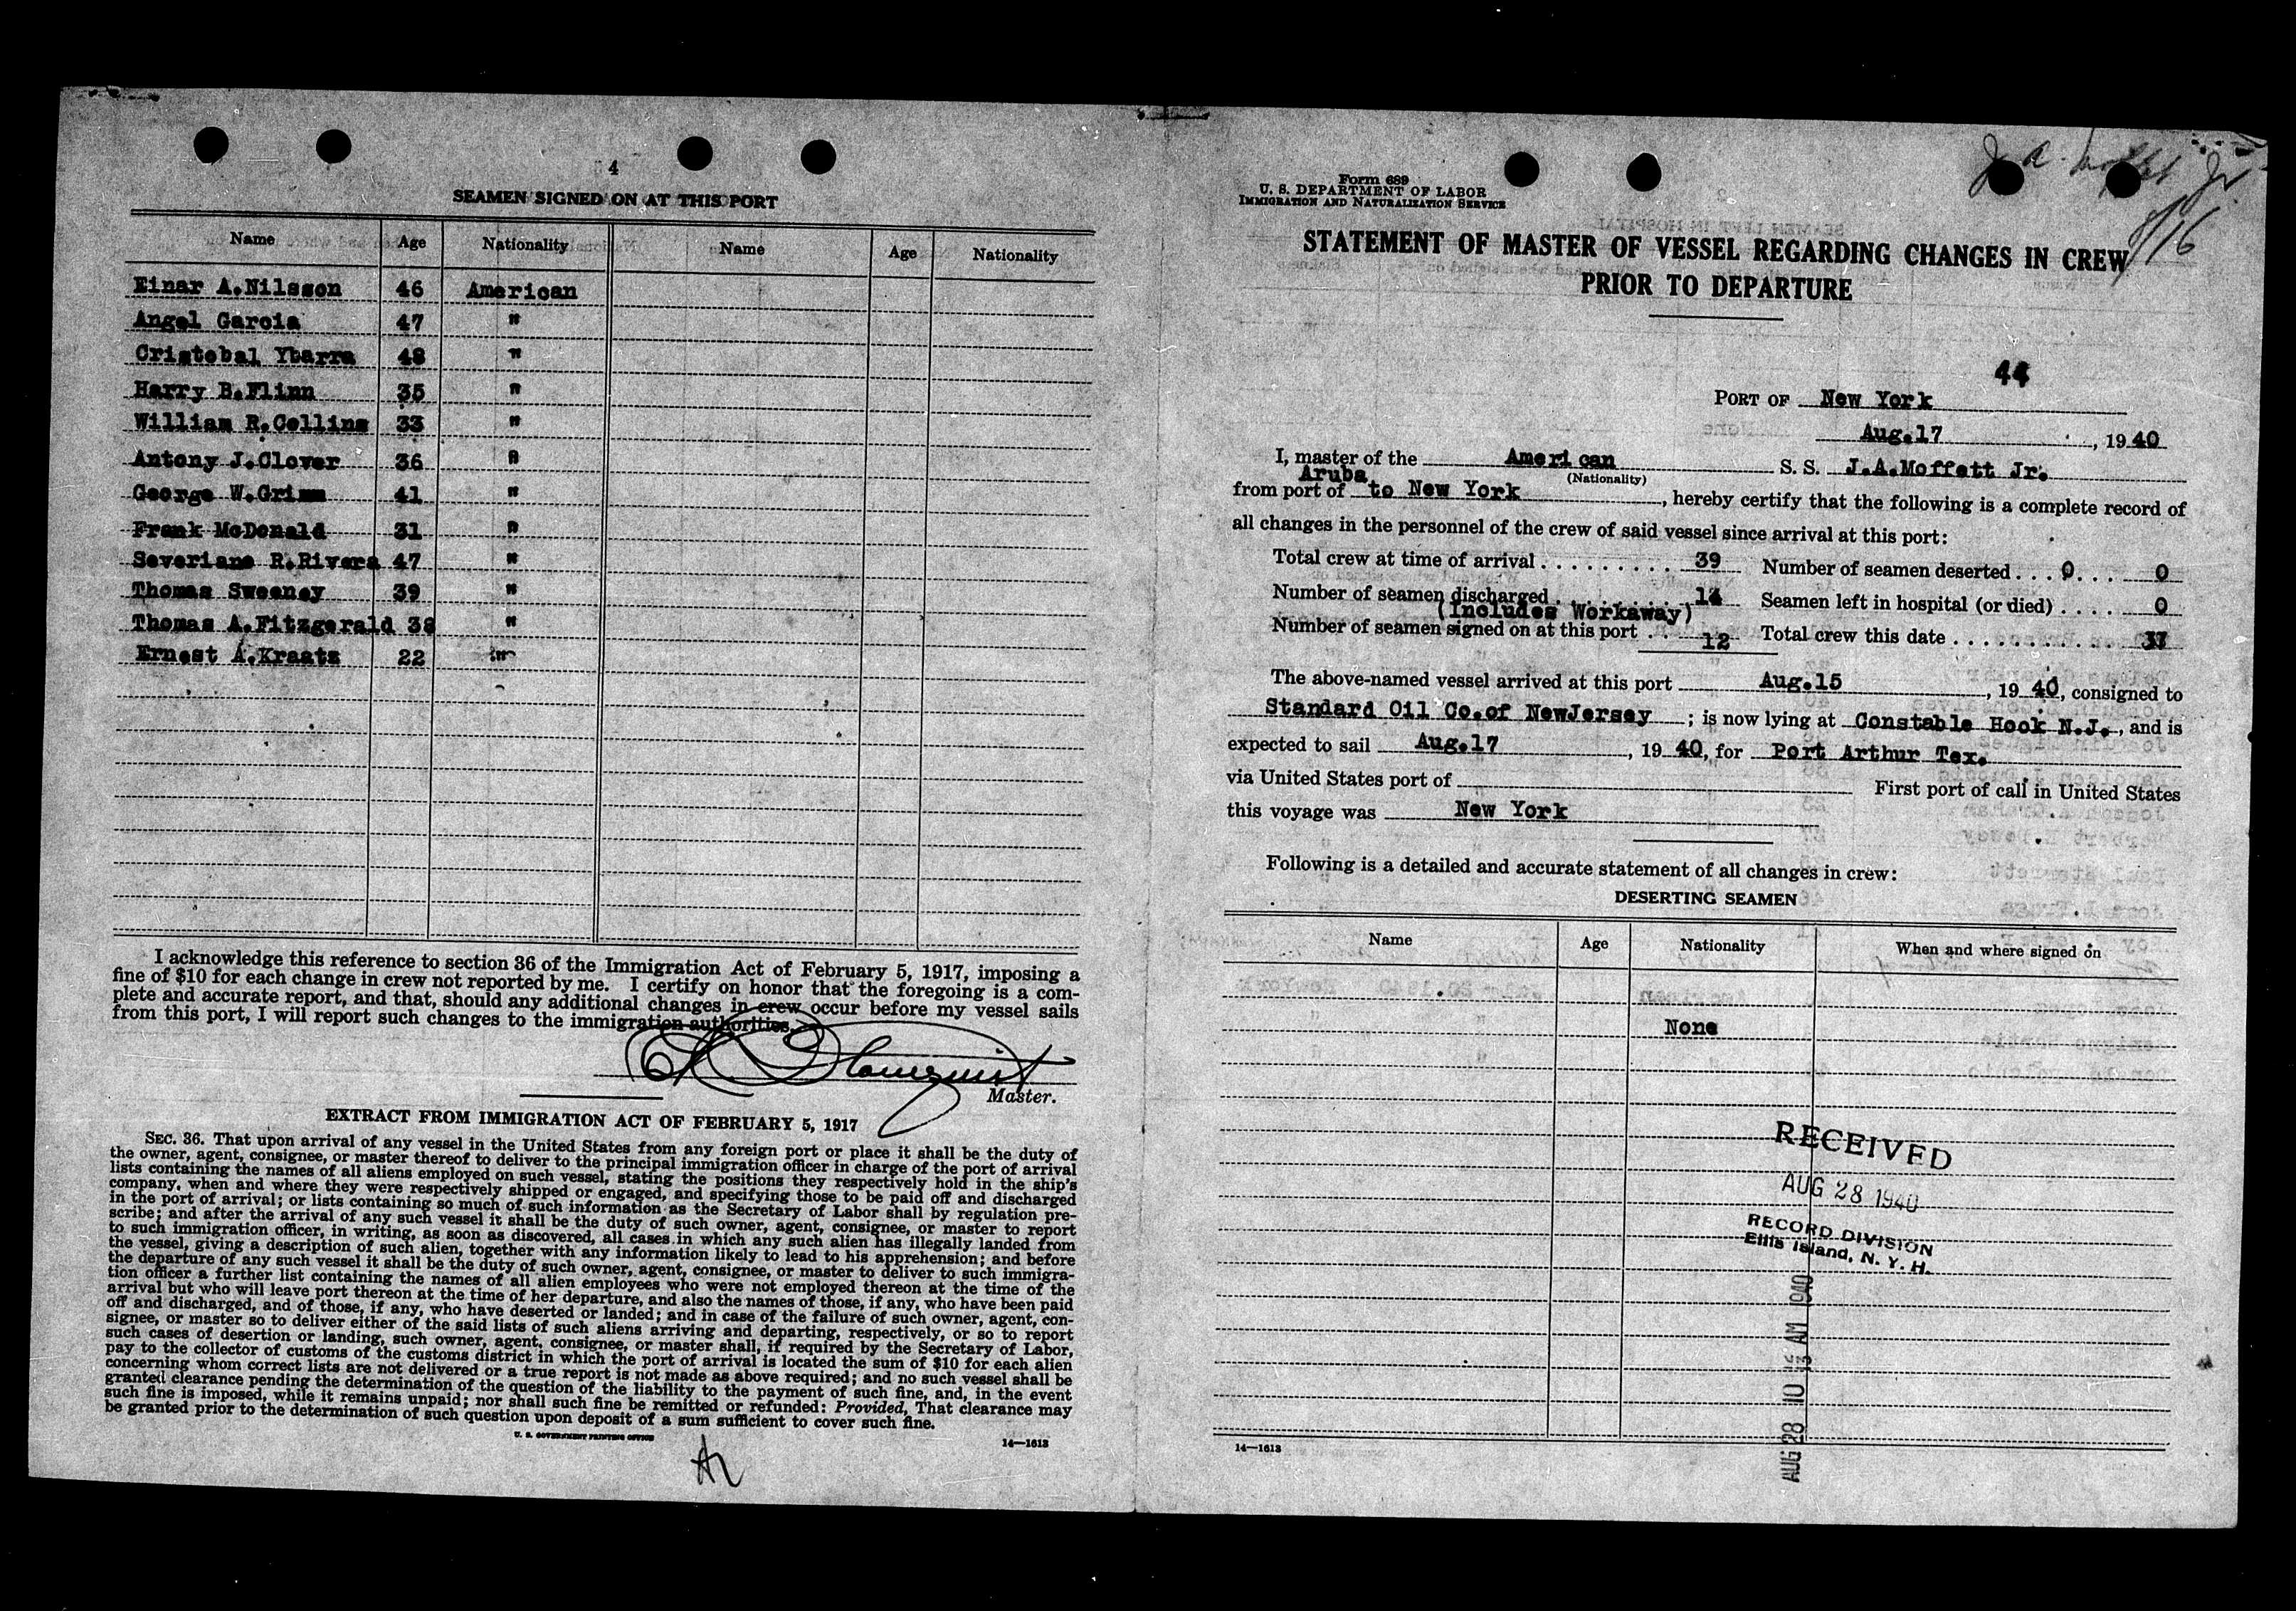 4
SEAMEN SIGNED ON AT THIS PORT
Name Age Nationality Name Age Nationality
Einar A.Nilsson 46 American
Angel Garcia 47 "
Cristobal Ybarra 48 "
Harry B.Flinn 35 "
William R.Collins 33 "
Antony J.Clover 36 "
George W.Grimm 41 "
Frank McDonald 31 "
Severiano R.Rivera 47 "
Thomas Sweeney 39 "
Thomas A.Fitzgerald 38 "
Ernest A.Kraatz 22 "
I acknowledge this reference to section 36 of the Immigration Act of February 5, 1917, imposing a
fine of $10 for each change in crew not reported by me. I certify on honor that the foregoing is a com-
plete and accurate report, and that, should any additional changes in crew occur before my vessel sails
from this port, I will report such changes to the immigration authorities.
Master.
EXTRACT FROM IMMIGRATION ACT OF FEBRUARY 5, 1917
SEC. 36. That upon arrival of any vessel in the United States from any foreign port or place it shall be the duty of
the owner, agent, consignee, or master thereof to deliver to the principal immigration officer in charge of the port of arrival
lists containing the names of all aliens employed on such vessel, stating the positions they respectively hold in the ship's
company, when and where they were respectively shipped or engaged, and specifying those to be paid off and discharged
in the port of arrival; or lists containing so much of such information as the Secretary of Labor shall by regulation pre-
scribe; and after the arrival of any such vessel it shall be the duty of such owner, agent, consignee, or master to report
to such immigration officer, in writing, as soon as discovered, all cases in which any such alien has illegally landed from
the vessel, giving a description of such alien, together with any information likely to lead to his apprehension; and before
the departure of any such vessel it shall be the duty of such owner, agent, consignee, or master to deliver to such immigra-
tion officer a further list containing the names of all alien employees who were not employed thereon at the time of the
arrival but who will leave port thereon at the time of her departure, and also the names of those, if any, who have been paid
off and discharged, and of those, if any, who have deserted or landed; and in case of the failure of such owner, agent, con-
signee, or master so to deliver either of the said lists of such aliens arriving and departing, respectively, or so to report
such cases of desertion or landing, such owner, agent, consignee, or master shall, if required by the Secretary of Labor,
pay to the collector of customs of the customs district in which the port of arrival is located the sum of $10 for each alien
concerning whom correct lists are not delivered or a true report is not made as above required; and no such vessel shall be
granted clearance pending the determination of the question of the liability to the payment of such fine, and, in the event
such fine is imposed, while it remains unpaid; nor shall such fine be remitted or refunded: Provided, That clearance may
be granted prior to the determination of such question upon deposit of a sum sufficient to cover such fine.
U. S. GOVERNMENT PRINTING OFFICE 14—1613
J. A. Moffett Jr.
8/16
Form 689
U. S. DEPARTMENT OF LABOR
IMMIGRATION AND NATURALIZATION SERVICE
STATEMENT OF MASTER OF VESSEL REGARDING CHANGES IN CREW
PRIOR TO DEPARTURE
44
PORT OF New York
Aug.17, 1940
I, master of the American S. S. J.A.Moffett Jr.
(Nationality)
Aruba
from port of to New York, hereby certify that the following is a complete record of
all changes in the personnel of the crew of said vessel since arrival at this port:
Total crew at time of arrival 39 Number of seamen deserted 0 0
Number of seamen discharged 14 Seamen left in hospital (or died) 0
(Includes Workaway)
Number of seamen signed on at this port 12 Total crew this date 37
The above-named vessel arrived at this port Aug.15, 1940, consigned to
Standard Oil Co.of NewJersey; is now lying at Constable Hook N.J., and is
expected to sail Aug.17, 1940, for Port Arthur Tex.
via United States port of First port of call in United States
this voyage was New York
Following is a detailed and accurate statement of all changes in crew:
DESERTING SEAMEN
Name Age Nationality When and where signed on
None
RECEIVED
AUG 28 1940
RECORD DIVISION
Ellis Island, N. Y. H.
AUG 28 10 AM 1940
14—1613